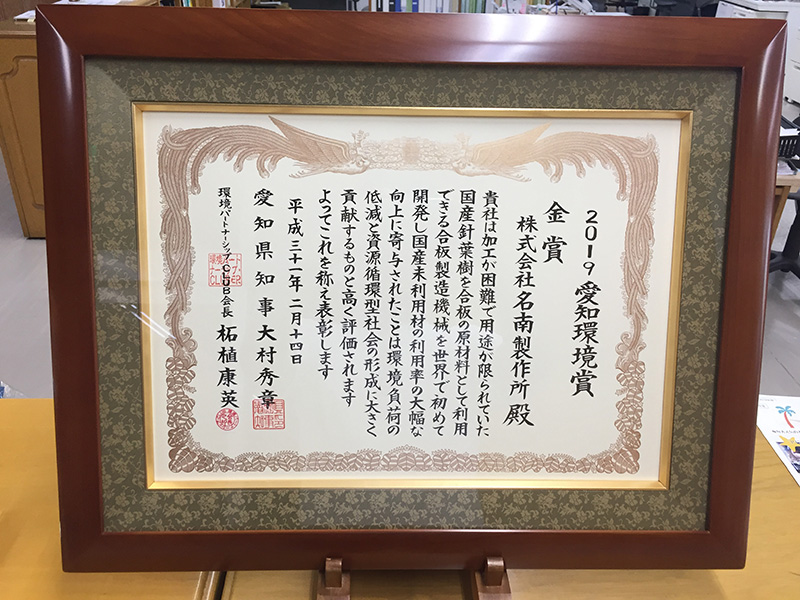 2019愛知環境賞
金賞
株式会社名南製作所 殿
貴社は加工が困難で用途が限られていた
国産針葉樹を合板の原材料として利用
できる合板製造機械を世界で初めて
開発し国産未利用材の利用率の大幅な
向上に寄与されたことは環境負荷の
低減と資源循環型社会の形成に大きく
貢献するものと高く評価されます
よってこれを称え表彰します
平成三十一年二月十四日
愛知県知事 大村秀章
環境パートナーシップCLUB会長 柘植康英